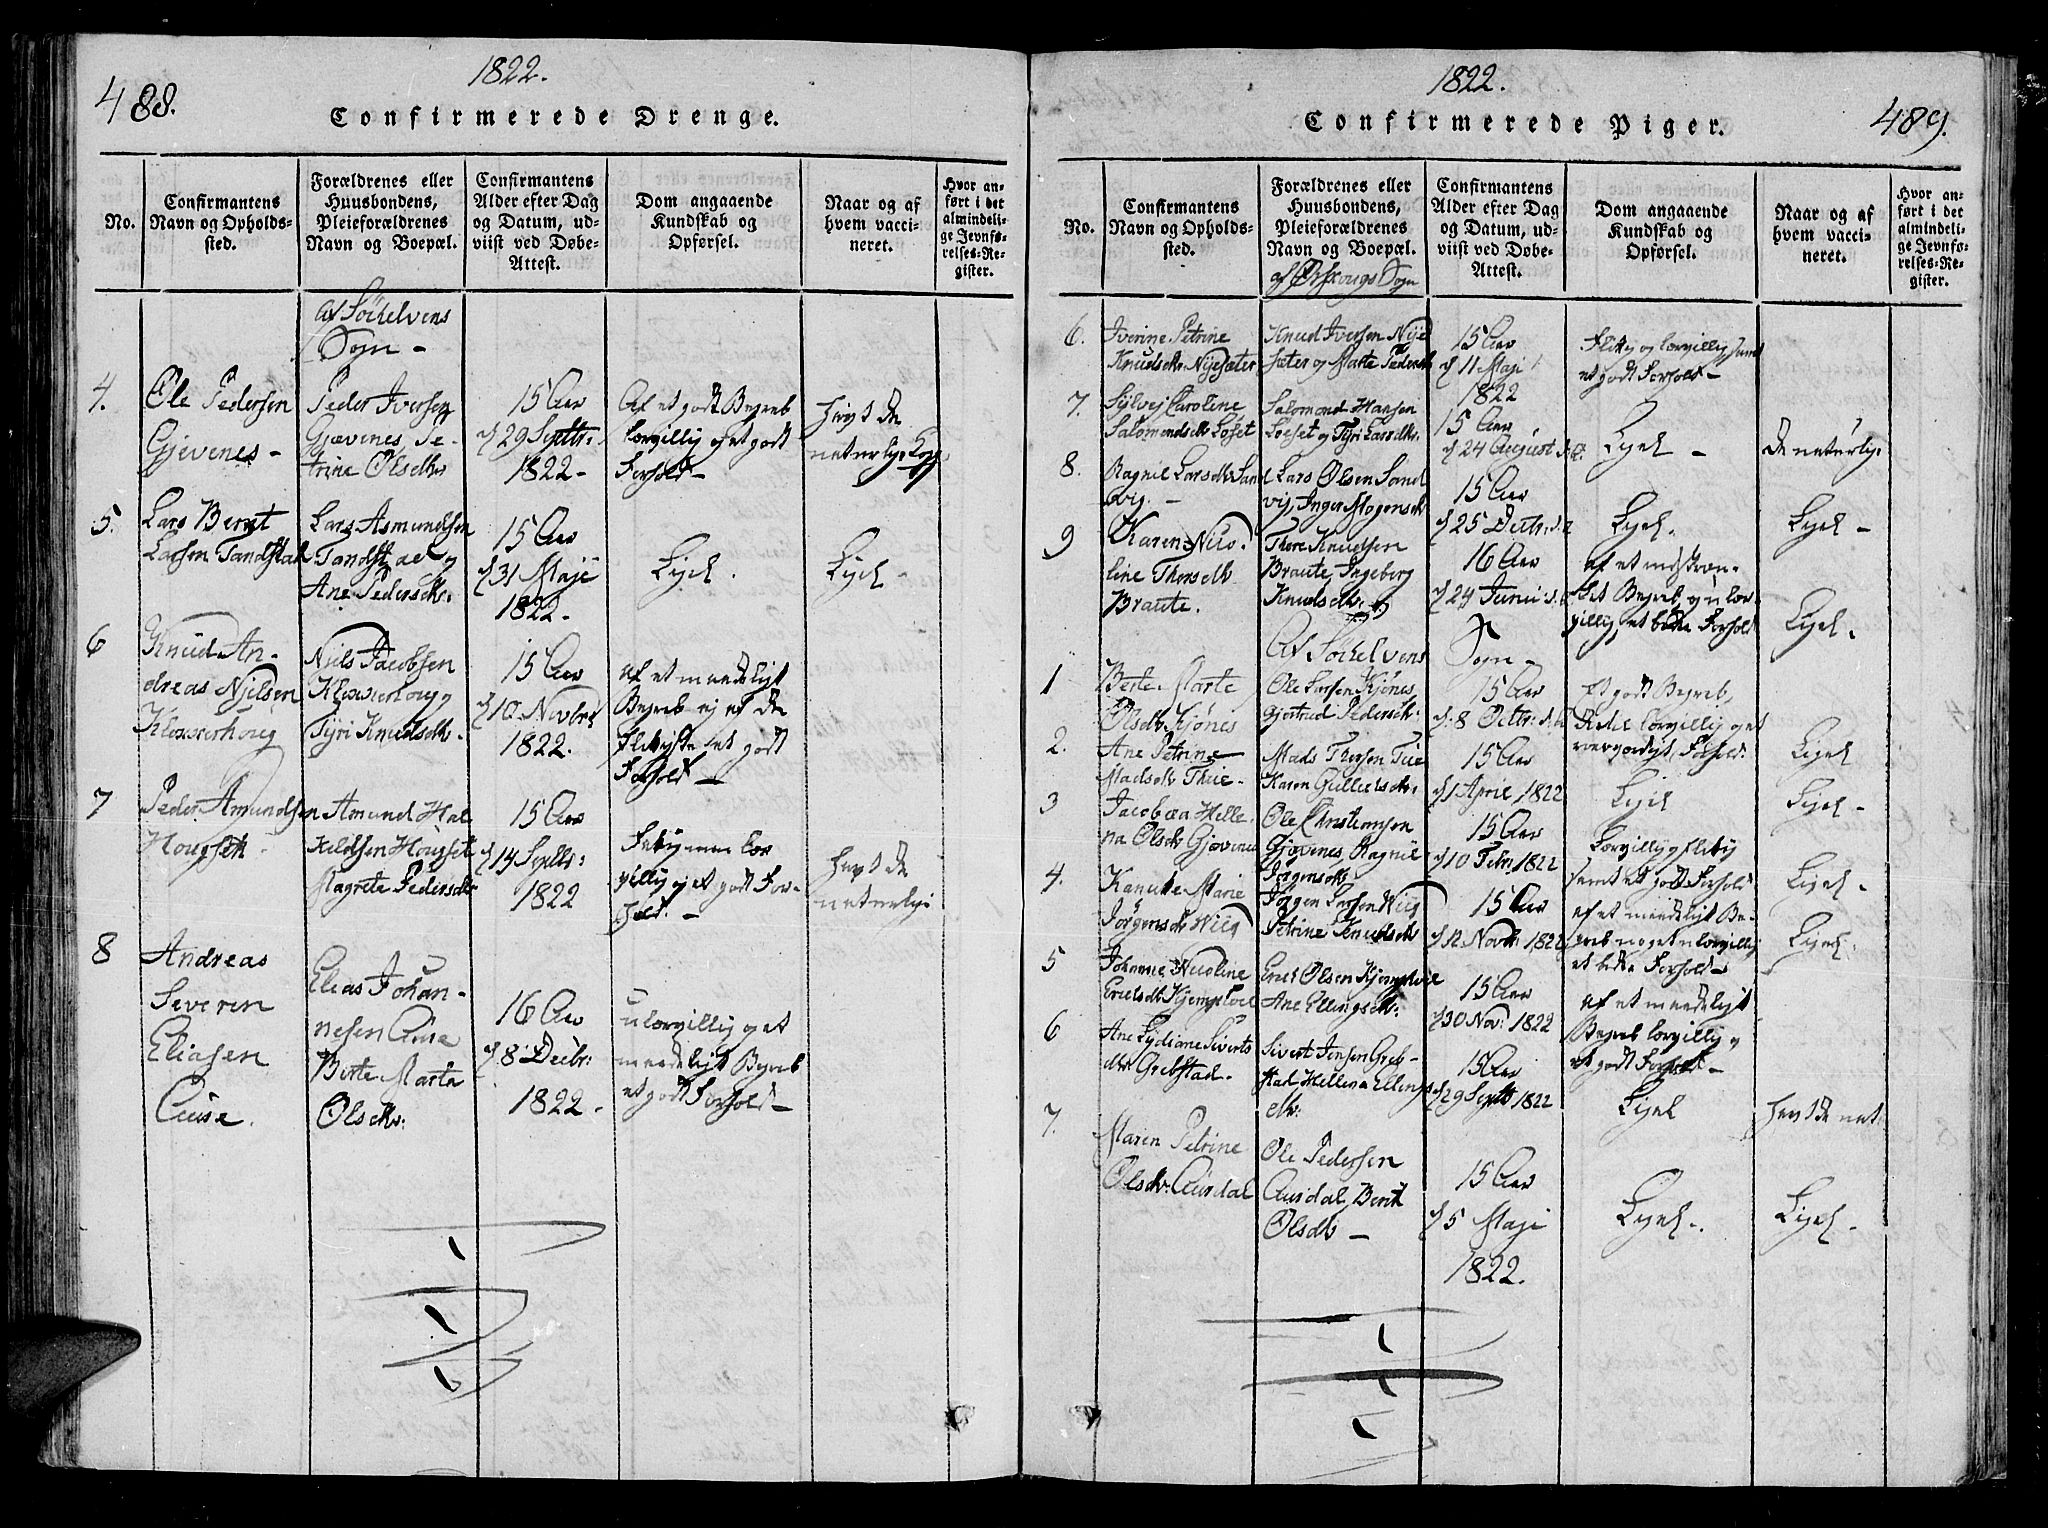 1822.
488.
Confirmerede Drenge.
No.
Confirmantens
Navn og Opholds-
sted.
Forældrenes eller
Huusbondens,
Pleieforældrenes
Navn og Boepæl.
Confirmantens
Alder efter Dag
og Datum, ud-
viist ved Døbe-
Attest.
Dom angaaende
Kundskab og
Opførsel.
Naar og af
hvem vacci-
neret.
Hvor an-
ført i det
almindeli-
ge Jevnfø-
relses-Re-
gister.
Af Söchelvens
Sogn -
4.
Ole Pedersen
Gjevenes -
Peder Iversen
Gjævenes Pe-
trine Olsdtr
15 Aar
d 29 Septbr:
1822 -
Af et godt Begreb
lærvillig og et godt
Forhold -
havt de
naturlige Kop.
5.
Lars Bernt
Larsen Tandstad
Lars Asmundsen
Tandstad og
Ane Pedersdtr.
15 Aar
d 31 Maji
1822.
Ligel.
Ligel -
6
Knud An-
dreas Nielsen
Klowerhoug
Niels Jacobsen
Klowerhoug
Tyri Knudsdtr.
15 Aar
d 10 Novbr
1822.
af et maadeligt
Begreb ej af de
flitigste et godt
Forhold -
7
Peder Amundsen
Hougset
Amund Hal
keldsen Hougset
Magrete Pedersdtr
15 Aar
d 14 Septbr:
1822
lær
villig og et godt For-
hold. -
havt de
naturlige
8
Andreas
Severin
Eliasen
Ause.
Elias Johan-
nesen Ause
Berte Marta
Olsdtr:
16 Aar
d 8 Decbr:
1822.
ulærvillig og et
maadeligt Begreb
et godt Forhold -
1822.
489.
Confirmerede Piger.
No.
Confirmantens
Navn og Opholds-
sted.
Forældrenes eller
Huusbondens,
Pleieforældrenes
Navn og Boepæl.
af Ørskougs Sogn
Confirmantens
Alder efter Dag
og Datum, ud-
viist ved Døbe-
Attest.
Dom angaaende
Kundskab og
Opførsel.
Naar og af
hvem vacci-
neret.
Hvor an-
ført i det
almindeli-
ge Jevnfø-
relses-Re-
gister.
6.
Iverine Petrine
Knudsdtr Nysæter
Knud Iversen Nye
sæter og Marte Pedersdtr
15 Aar
d 11 Maji
1822
Flitig og lærvillig samt
et godt Forhold -
7.
Sylvej Caroline
Salomonsdtr Løset
Salomond Hansen
Løeset og Tyri Larsdtr.
15 Aar
d 24 August s. A.
Ligel -
De naturlig:
8.
Ragnil Larsdtr Sand
vig. -
Lars Olsen Sand
vig, Inger Mogensdtr
15 Aar
d 25 Decbr: s. A
Ligel.
Ligel -
9
Karen Nico-
line Thorsdtr
Braute.
Thore Knudsen
Braute, Ingeborg
Knudsdtr.
16 Aar
d 24 Junii s. A
af et indskræn-
ket Begreb og ulær-
villig, et bedre Forhold
Ligel.
Af Söchelvens
Sogn -
1
Berte Marte
Olsdtr Kjønes
Ole Larsen Kjønes
Gjertrud Pedersdtr:
15 Aar
d. 8 Octbr: s. A
et godt Begreb,
lærvillig og et
Forhold.
Ligel
2.
Ane Petrine
Madsdtr Thue -
Mads Thorsen Tue
Karen Gulliksdtr.
15 Aar
d 1 April 1822
Ligel
Ligel -
3
Jacobæa Helle-
na Olsdtr Gjævenes
Ole Christiansen
Gjævenes, Ragnil
Jörgensdtr
15 Aar
d 10 Febr. 1822
Lærvillig og flitig
samt et godt Forhold
Ligel -
4.
Kanutte Marie
Jörgensdtr Viig
Jörgen Larsen Viig
Petrine Knudsdtr
15 Aar
d 12 Novbr: 1822
af et maadeligt Be-
greb noget ulærvillig
et bedre Forhold -
Ligel.
5
Johanne Nicoline
Erichsdtr Kjempedal
Erich Olsen Kjempedal
Ane Ellingsdtr:
15 Aar
d 30 Nov: 1822
af et maadeligt
Begreb lærvillig og
et godt Forhold -
6
Ane Lydiane Siverts
dtr Grebstad.
Sivert Jensen Greb-
stad, Hellena Ellings
dtr.
15 Aar
d 29 Septbr 1822
Ligel
havt de nat:
7.
Maren Petrine
Olsdtr: Aursdal
Ole Pedersen
Aursdal, Berit
Olsdtr -
15 Aar
d 5 Maji
1822.
Ligel -.
Ligel -